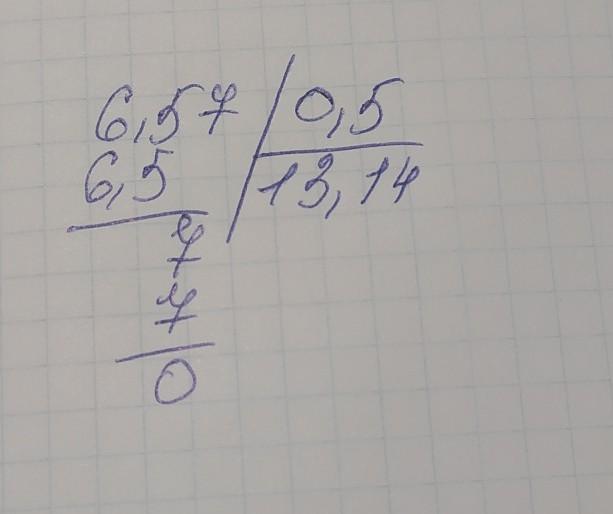 6,57 0,5
6,5 13,14
7
7
0